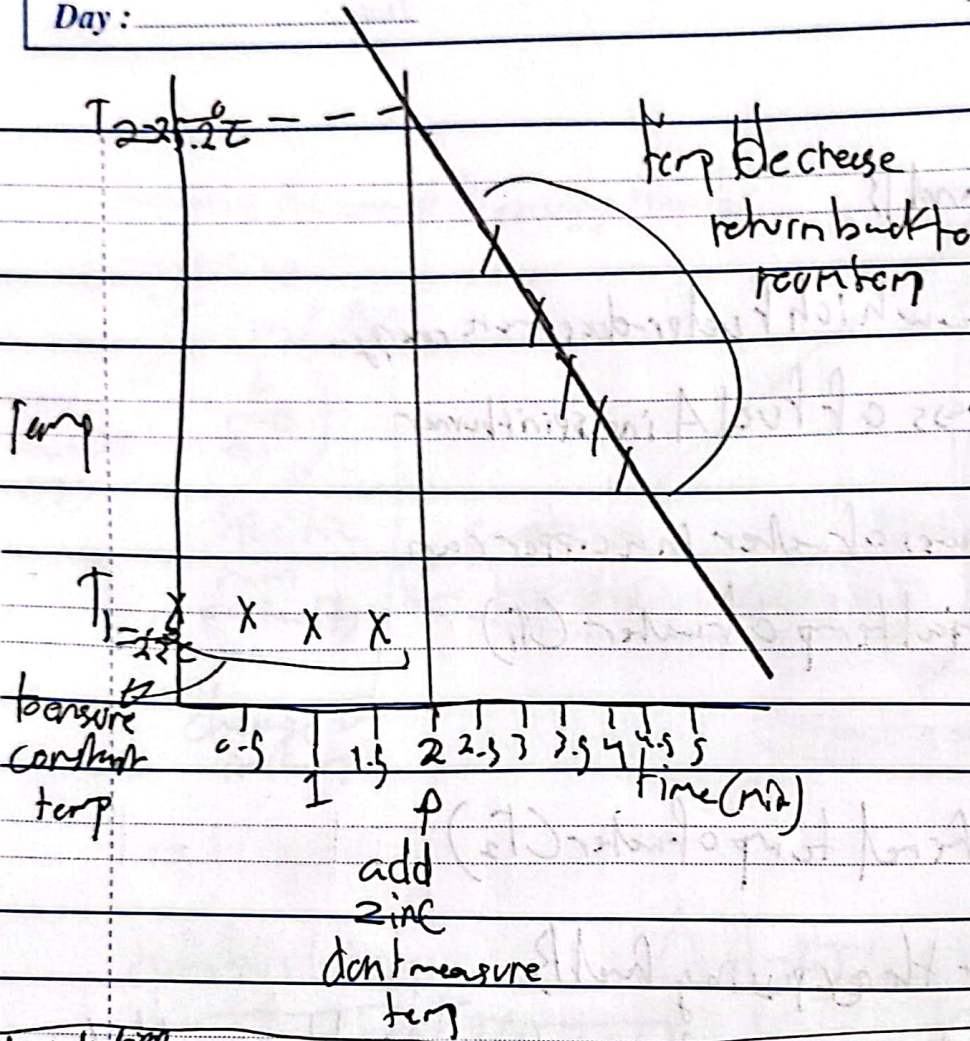 Day :
temp decrease
return back to
room temp
Temp
T1
to ensure
constant
temp
0.5 1 1.5 2 2.5 3 3.5 4 4.5 5
time (min)
add
zinc
dont measure
temp